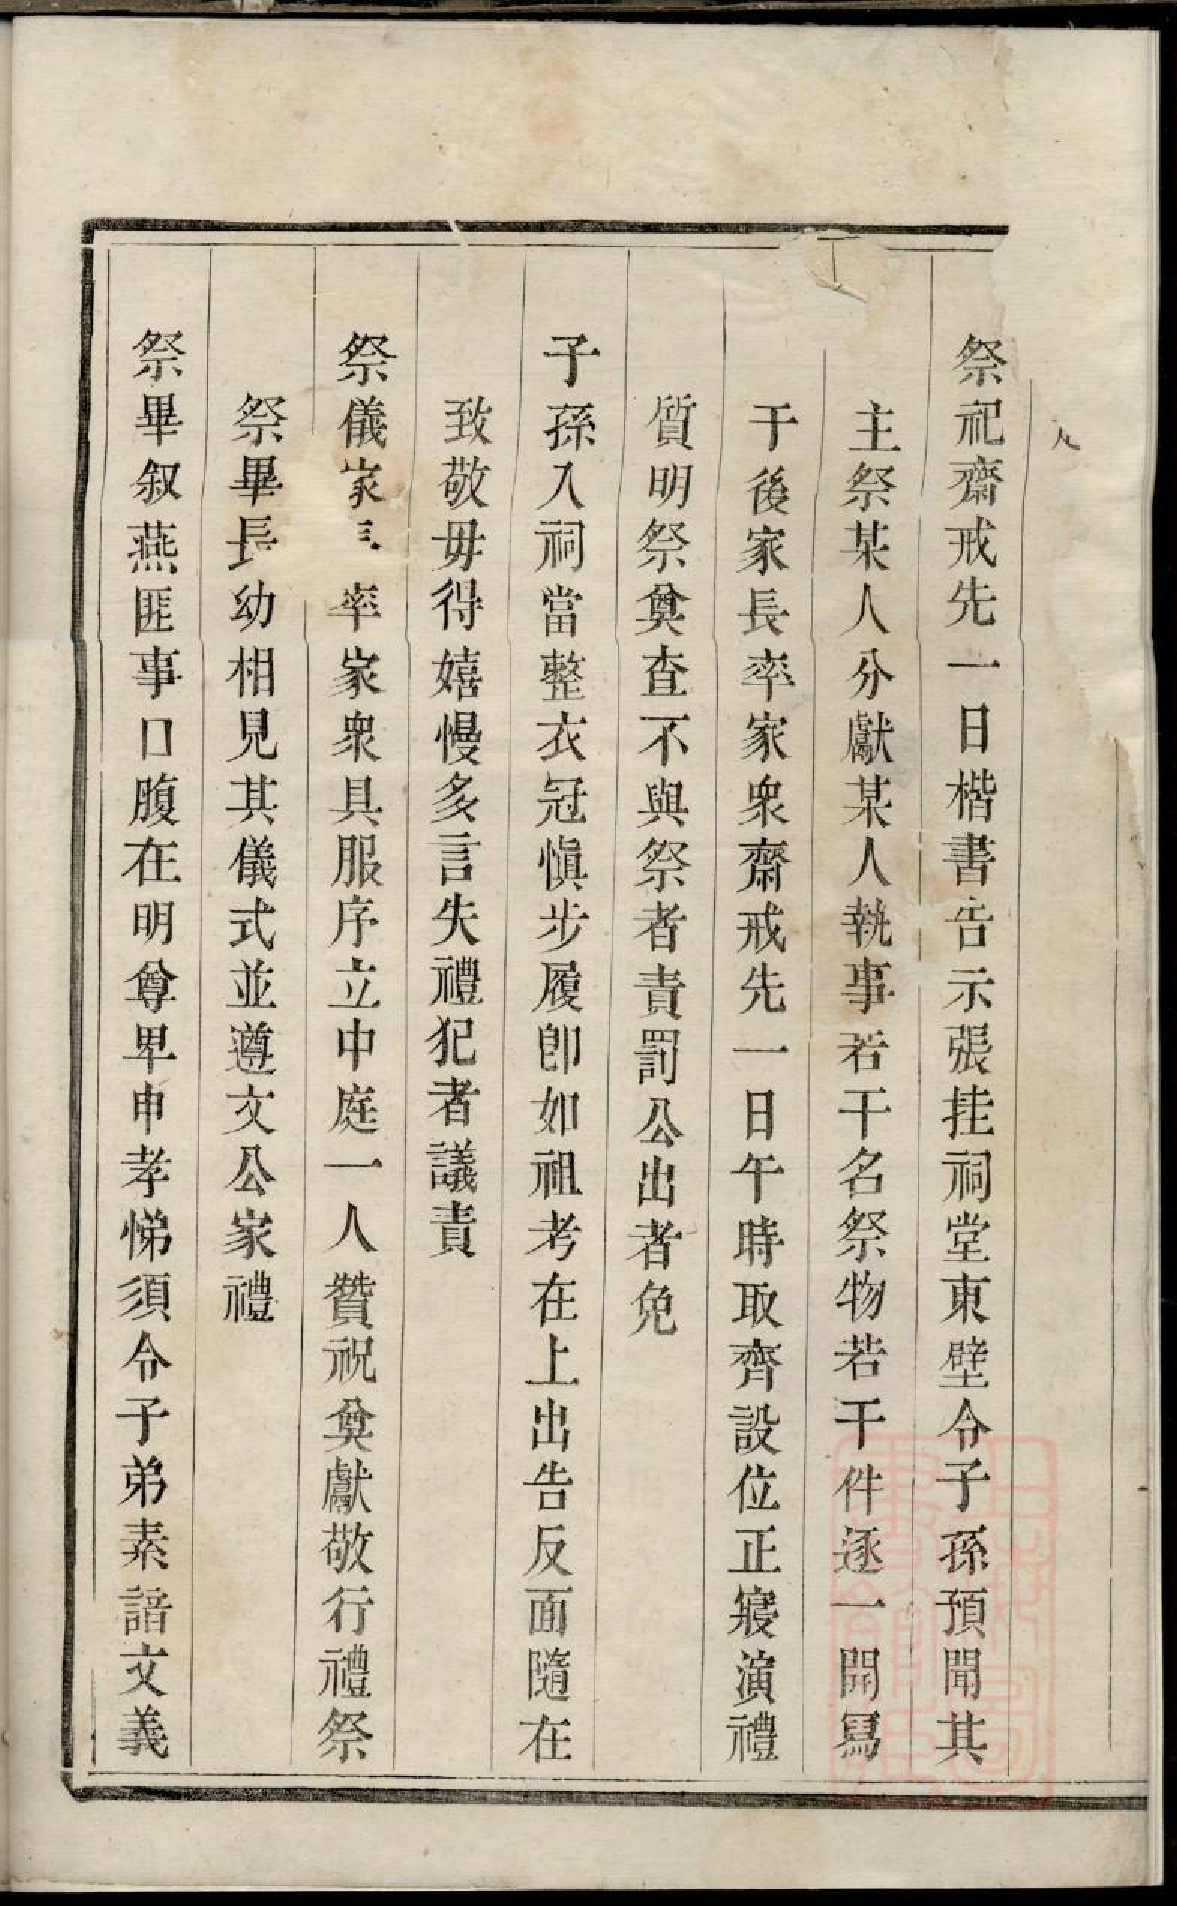 祭祀齋戒先一日楷書告示張挂祠堂東壁令子孫預聞其
主祭某人分獻某人執事若干名祭物若干件逐一開寫
于後家長率家衆齋戒先一日午時取齊設位正寢演禮
質明祭奠查不與祭者責罰公出者免
子孫入祠當整衣冠慎步履卽如祖考在上出告反面隨在
致敬毋得嬉慢多言失禮犯者議責
祭儀家率家衆具服序立中庭一人贊祝奠獻敬行禮祭
祭畢長幼相見其儀式並遵文公家禮
祭畢叙燕匪事口腹在明尊卑申孝悌須令子弟素諳文義